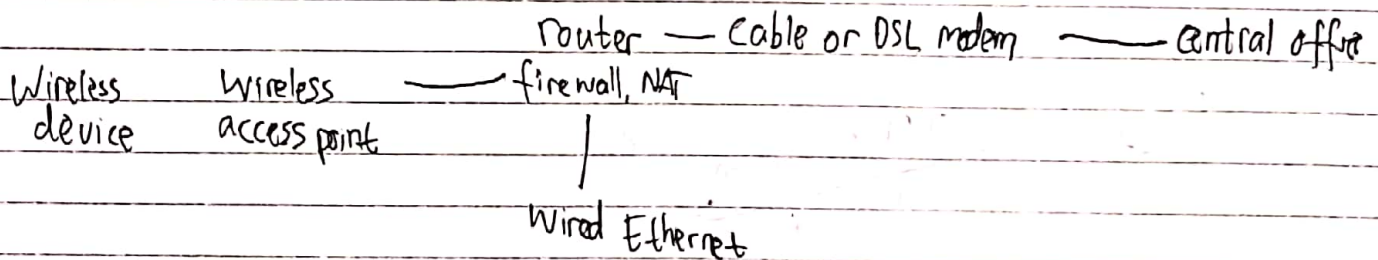 router — Cable or DSL modem — central office
Wireless device
Wireless access point — firewall, NAT
Wired Ethernet